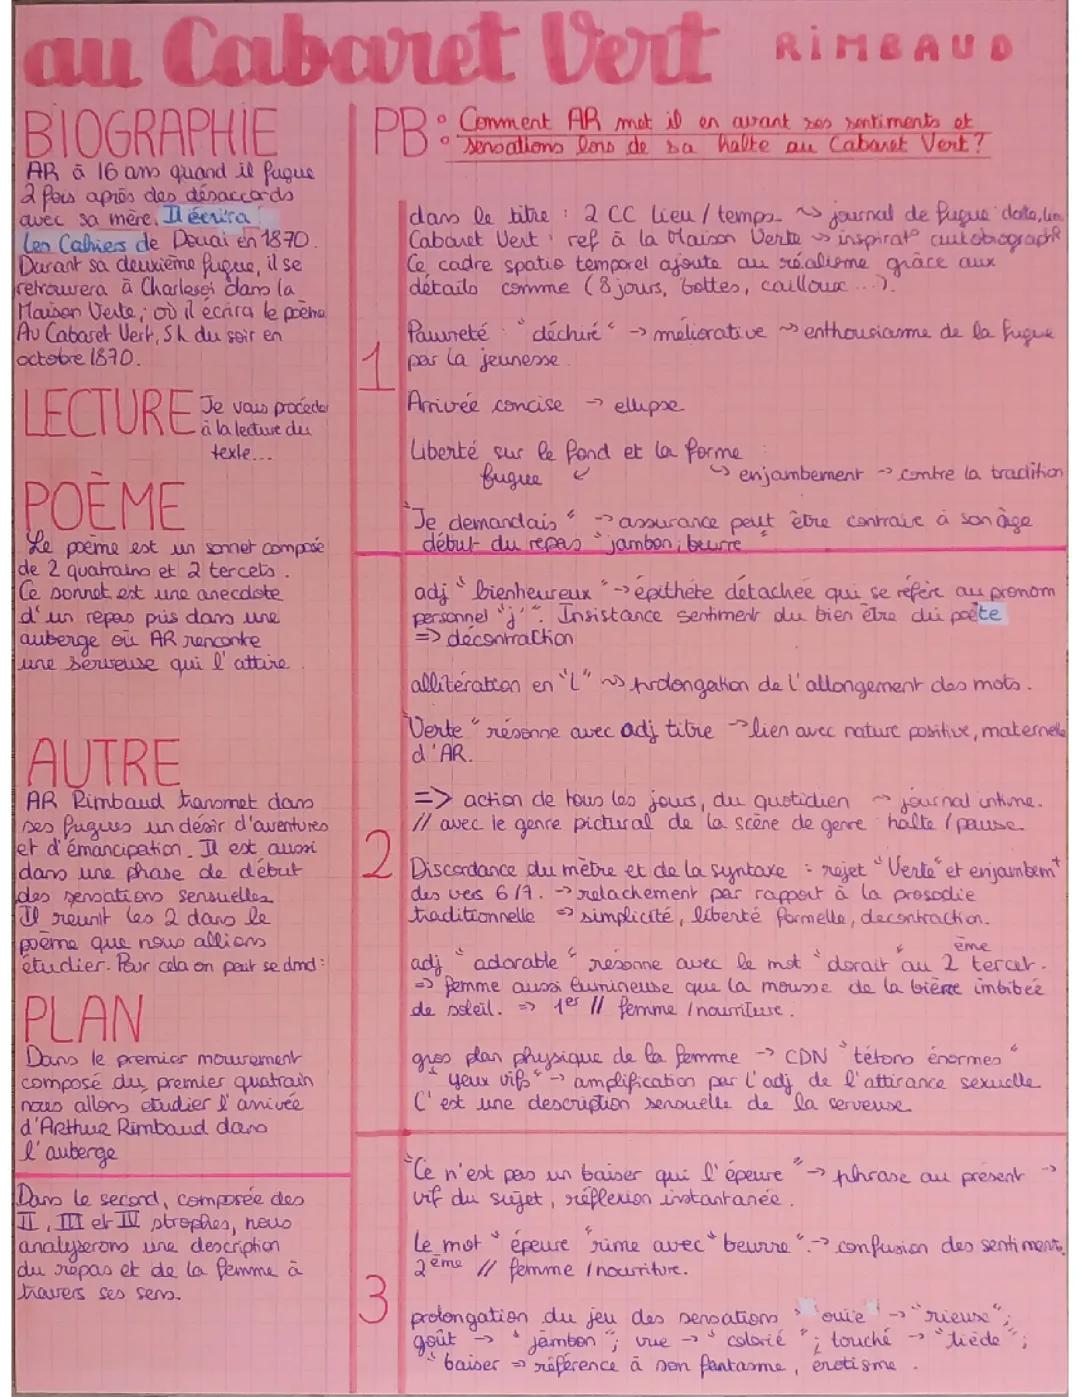 au Cabaret Vert RiMBAUD
BIOGRAPHIE
AR à 16 ans quand il fugue
2 fois après des désaccords
avec sa mère. Il écrira
Les Cahiers de Douai en 1870.
Durant sa deuxième fugue, il se
retrouvera à Charleroi dans la
Maison Verte, où il écrira le poème
Au Cabaret Vert, 5h du soir en
octobre 1870.
LECTURE Je vais procéder
à la lecture du
texte...
POÈME
Le poème est un sonnet composé
de 2 quatrains et 2 tercets.
Ce sonnet est une anecdote
d'un repas pris dans une
auberge où AR rencontre
une serveuse qui l'attire.
AUTRE
AR Rimbaud transmet dans
ses fugues un désir d'aventures
et d'émancipation. Il est aussi
dans une phase de début
des sensations sensuelles.
Il réunit les 2 dans le
poème que nous allions
étudier. Pour cela on peut se dmd :
PLAN
Dans le premier mouvement
composé du premier quatrain
nous allons étudier l'arrivée
d'Arthur Rimbaud dans
l'auberge
Dans le second, composée des
II, III et IV strophes, nous
analyserons une description
du repas et de la femme à
travers ses sens.
PB : Comment AR met il en avant ses sentiments et
sensations lors de sa halte au Cabaret Vert ?
1
dans le titre : 2 CC lieu / temps. ~> journal de fugue date, lieu
Cabaret Vert : ref à la Maison Verte ~> inspirat° autobiograph
Ce cadre spatio temporel ajoute au réalisme grâce aux
détails comme (8 jours, bottes, cailloux...).
Pauvreté : "déchiré" -> méliorative ~> enthousiasme de la fugue
par la jeunesse.
Arrivée concise -> ellipse
Liberté sur le fond et la forme
fugue ↙ ↳ enjambement -> contre la tradition
"Je demandais" -> assurance peut être contraire à son âge
début du repas "jambon, beurre"
2
adj "bienheureux" -> épithète détachée qui se réfère au pronom
personnel "j'". Insistance sentiment du bien être du poète
=> décontraction
allitération en "L" ~> prolongation de l'allongement des mots.
"Verte" résonne avec adj titre -> lien avec nature positive, maternelle
d'AR.
=> action de tous les jours, du quotidien ~ journal intime.
// avec le genre pictural de la scène de genre halte / pause.
Discordance du mètre et de la syntaxe : rejet "Verte" et enjambemt
des vers 6/7. -> relachement par rapport à la prosodie
traditionnelle => simplicité, liberté formelle, decontraction.
adj "adorable" résonne avec le mot "dorait" au 2ème tercet.
=> femme aussi lumineuse que la mousse de la bière imbibée
de soleil. => 1er // femme / nourriture.
gros plan physique de la femme -> CDN "tétons énormes"
"yeux vifs" -> amplification par l'adj de l'attirance sexuelle
C'est une description sensuelle de la serveuse.
3
"Ce n'est pas un baiser qui l'épeure" -> phrase au présent ->
vif du sujet, réflexion instantanée.
Le mot "épeure" rime avec "beurre". -> confusion des sentiments.
2ème // femme / nourriture.
prolongation du jeu des sensations > ouïe -> "rieuse";
goût -> "jambon"; vue -> "colorié"; touché -> "tiède";
"baiser => référence à son fantasme, érotisme.